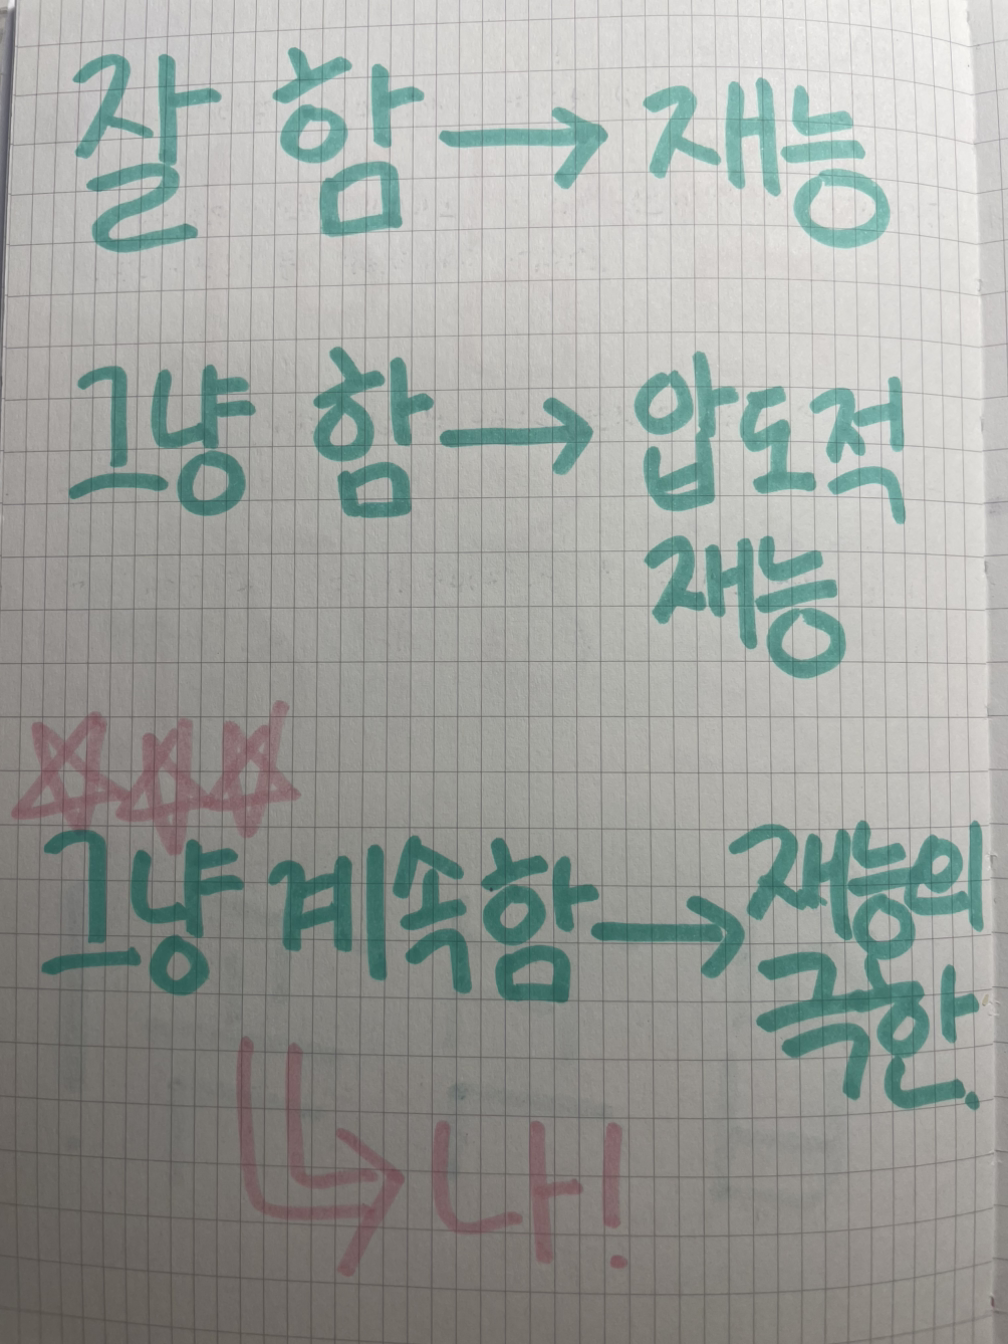 잘 함 → 재능
그냥 함 → 압도적
재능
☆☆☆
그냥 계속함 → 재능의
극한.
나!